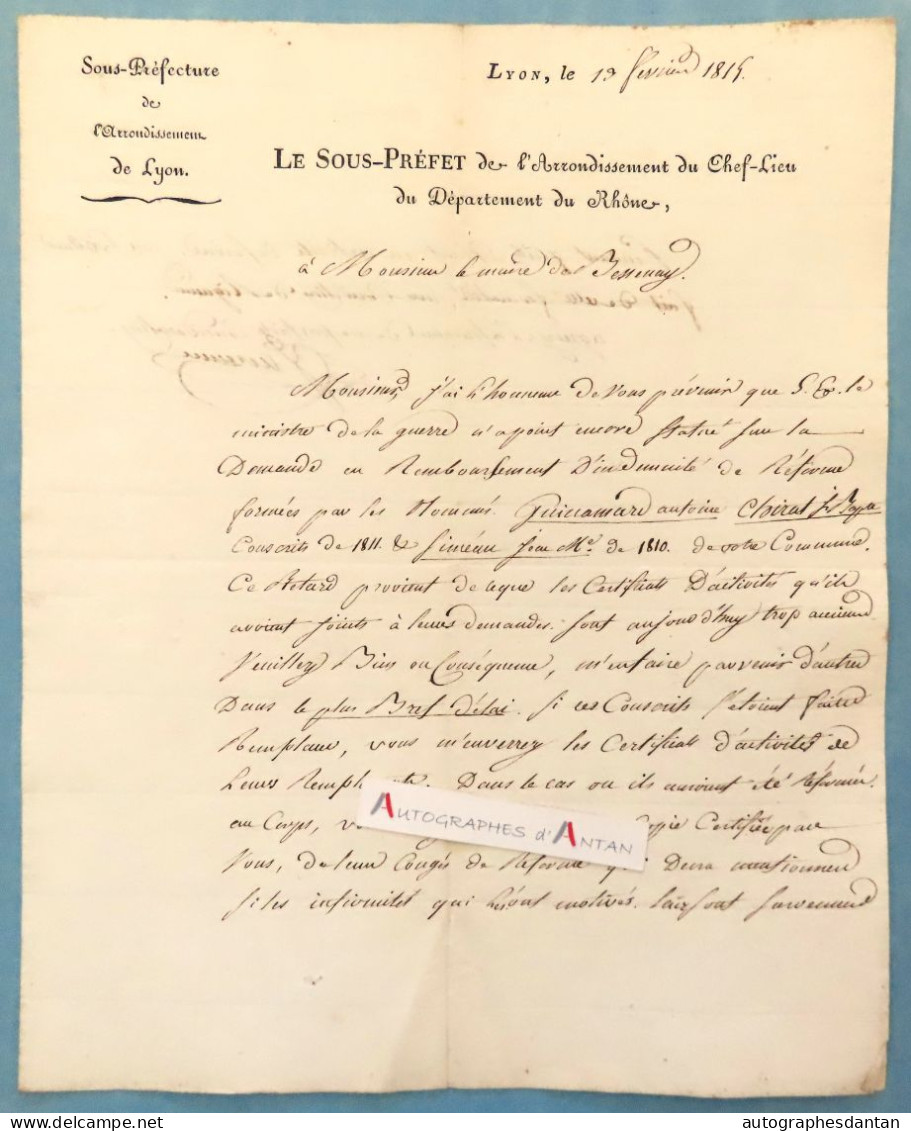 Sous-Préfecture
de
l'Arrondissement
de Lyon.
Lyon, le 13 février 1815.
Le Sous-Préfet de l'Arrondissement du Chef-Lieu
du Département du Rhône,
à Monsieur le maire de Bessenay.
Monsieur, j'ai l'honneur de vous prévenir que S. Ex. le
ministre de la guerre n'a point encore statué sur la
Demande en Remboursement D'indemnité de Réforme
formées par les Nommés antoine Clairat J. Bapte
Conscrits de 1811. & Siméan Jean Me. de 1810. de votre Commune.
Ce Retard provient de ce que les Certificats D'activités qu'ils
avoient joints à leurs demandes. sont aujourd'huy trop anciens
Veuillez Bien en Conséquence, m'en faire parvenir d'autres
Dans le plus Bref délai. Si ces Conscrits s'étoient faits
Remplacer, vous m'enverrez les Certificats d'activités de
Leurs Dans le cas ou ils auroient été Réformés
au Corps, Coppie Certifiée par
Vous, de leur Congés de Réforme qui Devra mentionner
si les infirmités qui l'ont motivés. sont survenues
Autographes d'Antan
delcampe.net
autographesdantan